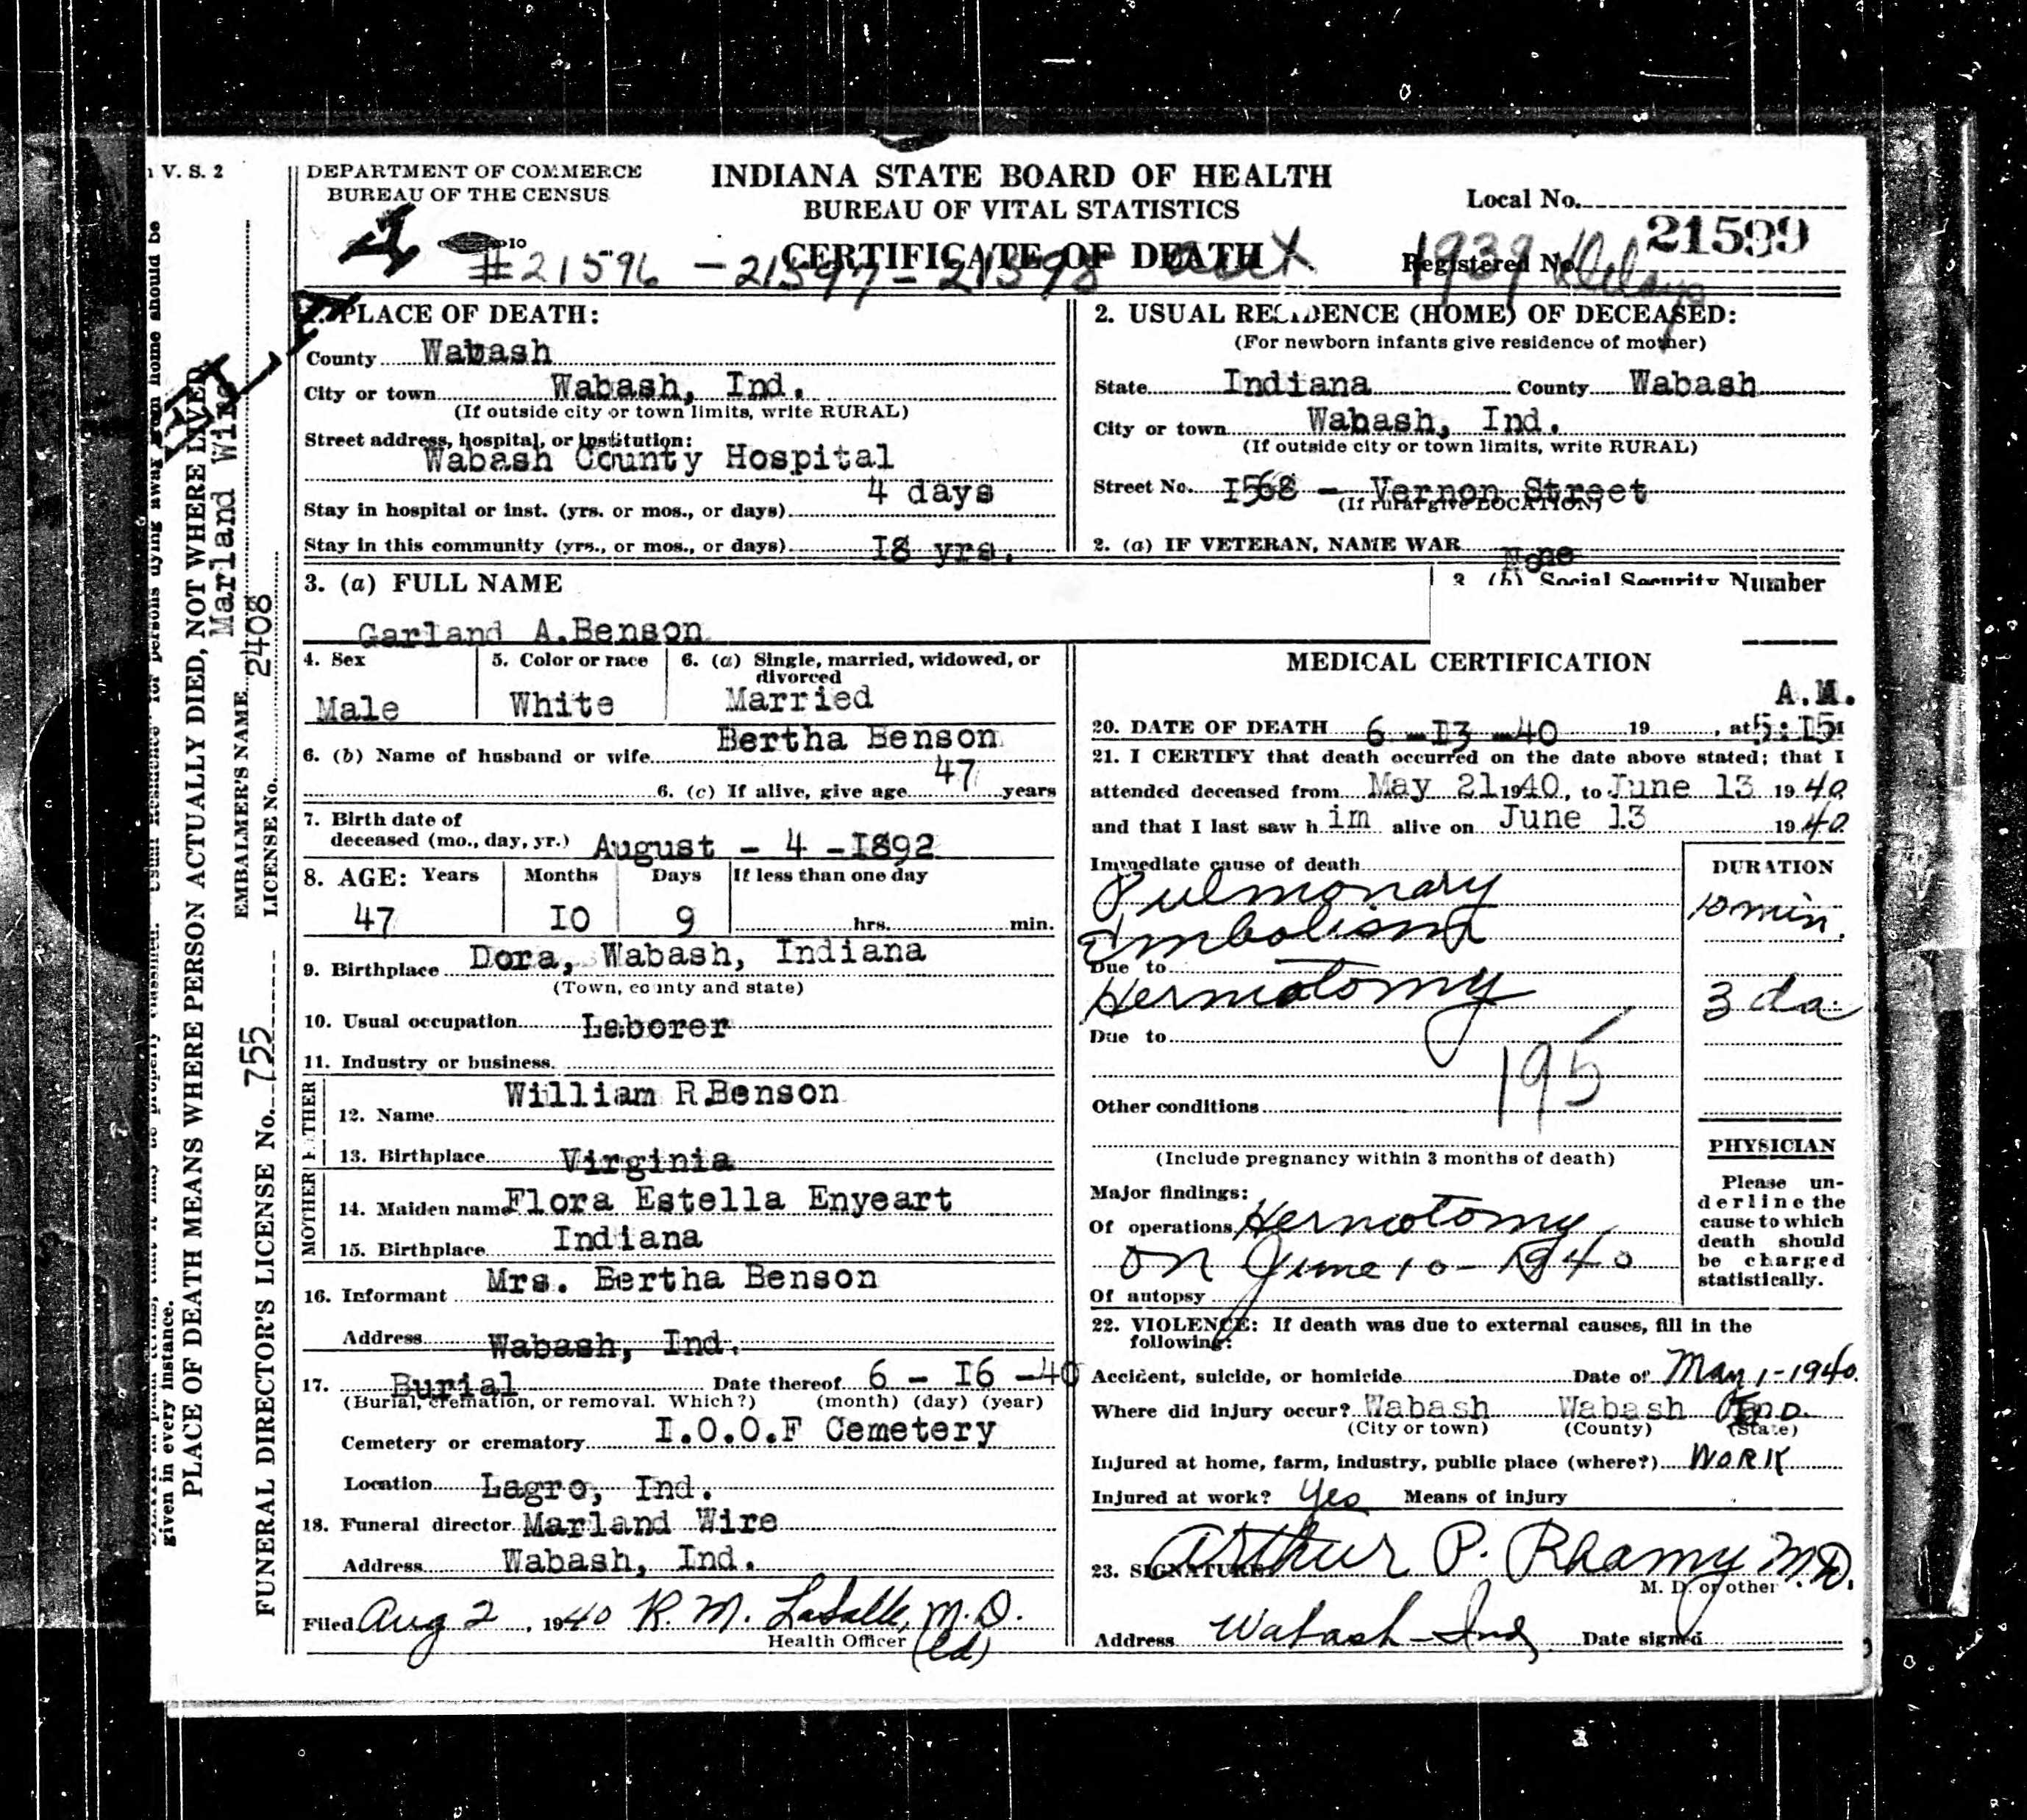 V. S. 2
DEPARTMENT OF COMMERCE
BUREAU OF THE CENSUS
INDIANA STATE BOARD OF HEALTH
BUREAU OF VITAL STATISTICS
CERTIFICATE OF DEATH
Local No.
21599
Registered No.
#21596 - 21597 - 21598 1939
1. PLACE OF DEATH:
County Wabash
City or town Wabash, Ind.
(If outside city or town limits, write RURAL)
Street address, hospital, or institution:
Wabash County Hospital
Stay in hospital or inst. (yrs. or mos., or days) 4 days
Stay in this community (yrs., or mos., or days) I8 yrs.
2. USUAL RESIDENCE (HOME) OF DECEASED:
(For newborn infants give residence of mother)
State Indiana County Wabash
City or town Wabash, Ind.
(If outside city or town limits, write RURAL)
Street No. I568 - Vernon Street
(If rural give LOCATION)
2. (a) IF VETERAN, NAME WAR None
3. (a) FULL NAME
Garland A.Benson
3 (b) Social Security Number
4. Sex
Male
5. Color or race
White
6. (a) Single, married, widowed, or divorced
Married
6. (b) Name of husband or wife Bertha Benson
6. (c) If alive, give age 47 years
7. Birth date of
deceased (mo., day, yr.) August - 4 -I892
8. AGE: Years Months Days If less than one day
47 IO 9 hrs. min.
9. Birthplace Dora, Wabash, Indiana
(Town, county and state)
10. Usual occupation Laborer
11. Industry or business
FATHER
12. Name William R.Benson
13. Birthplace Virginia
MOTHER
14. Maiden name Flora Estella Enyeart
15. Birthplace Indiana
16. Informant Mrs. Bertha Benson
Address Wabash, Ind.
17. Burial Date thereof 6 - I6 -40
(Burial, cremation, or removal. Which?) (month) (day) (year)
Cemetery or crematory I.O.O.F Cemetery
Location Lagro, Ind.
18. Funeral director Marland Wire
Address Wabash, Ind.
Filed Aug 2, 1940 R. M. LaSalle, M.D.
Health Officer (Ed)
MEDICAL CERTIFICATION
A.M.
20. DATE OF DEATH 6 -I3 -40 19 , at 5:I5
21. I CERTIFY that death occurred on the date above stated; that I
attended deceased from May 21 1940, to June 13 1940
and that I last saw him alive on June 13 1940
Immediate cause of death
DURATION
Pulmonary
Embolism
10 min.
Due to
Herniotomy
3 da
Due to
195
Other conditions
(Include pregnancy within 3 months of death)
Major findings:
Of operations Herniotomy
on June 10-1940
Of autopsy
PHYSICIAN
Please un-
derline the
cause to which
death should
be charged
statistically.
22. VIOLENCE: If death was due to external causes, fill in the
following:
Accident, suicide, or homicide Date of May 1-1940.
Where did injury occur? Wabash Wabash Ind.
(City or town) (County) (State)
Injured at home, farm, industry, public place (where?) WORK
Injured at work? Yes Means of injury
23. SIGNATURE Arthur P. Rhamy M.D.
M. D. or other
Address Wabash-Ind Date signed
given in every instance.
PLACE OF DEATH MEANS WHERE PERSON ACTUALLY DIED, NOT WHERE LIVED
EMBALMER'S NAME Marland Wire
LICENSE No. 2408
FUNERAL DIRECTOR'S LICENSE No. 755